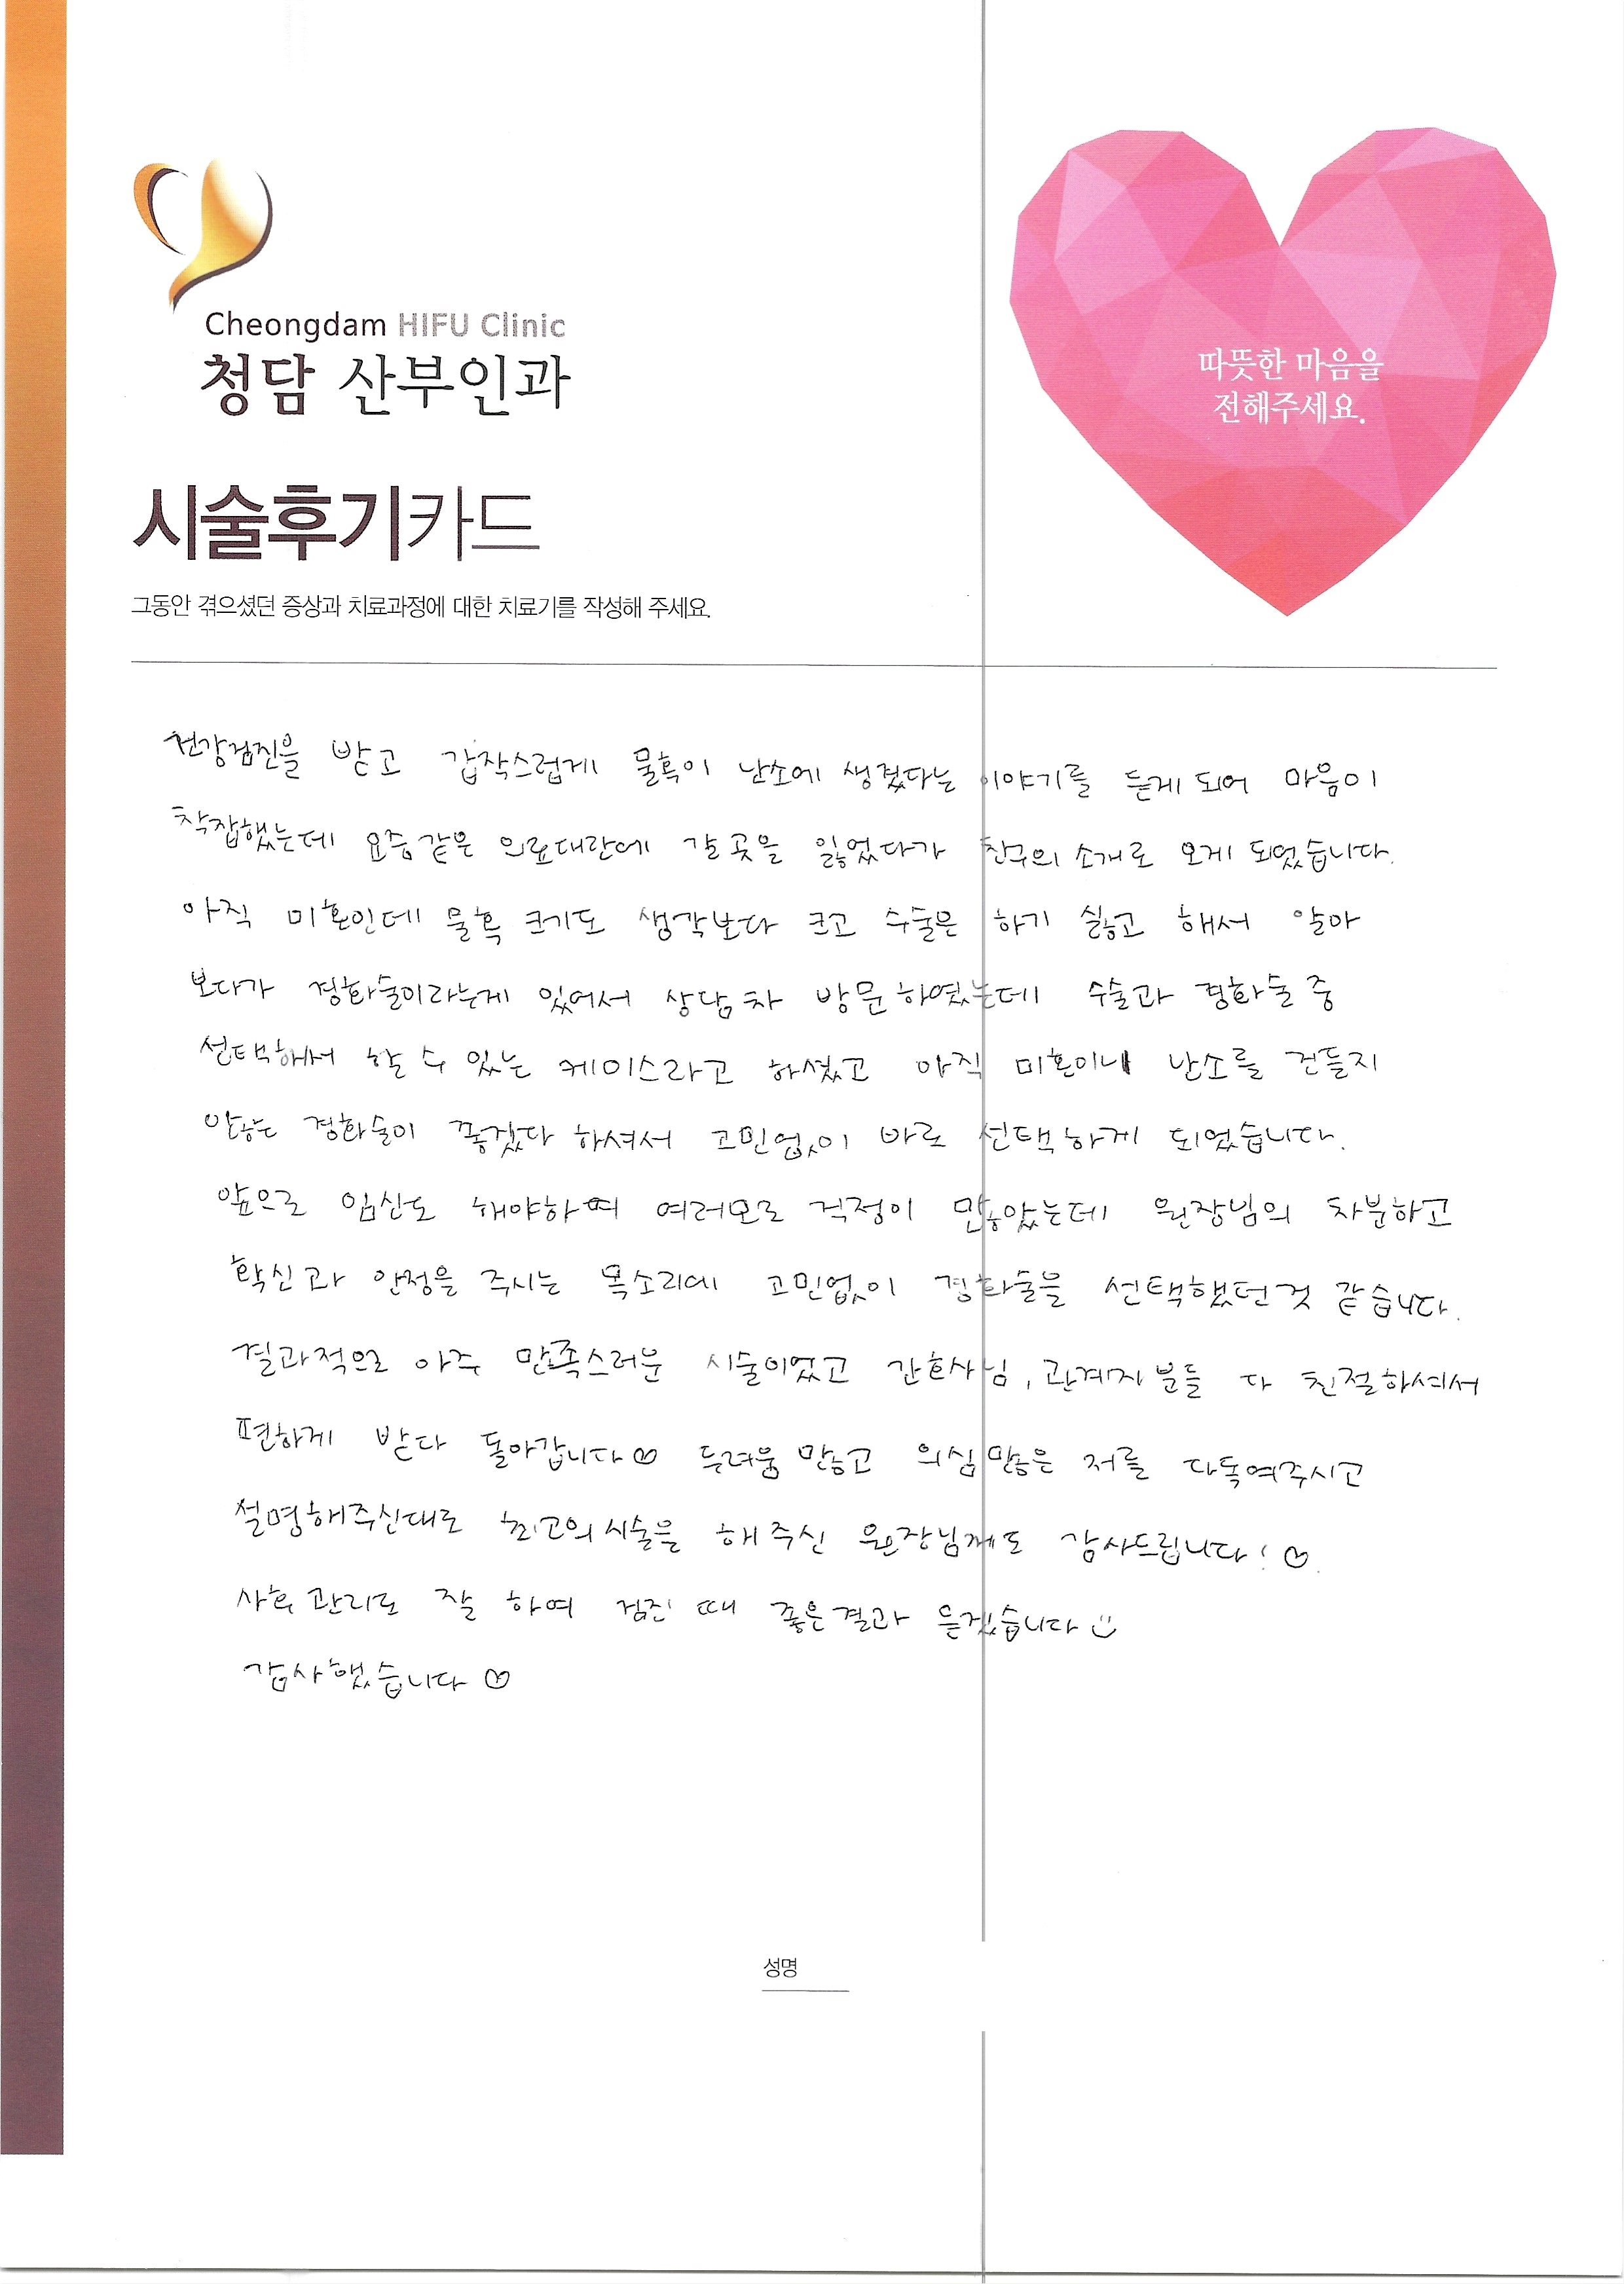 Cheongdam HIFU Clinic
청담 산부인과
따뜻한 마음을
전해주세요.
시술후기카드
그동안 겪으셨던 증상과 치료과정에 대한 치료기를 작성해 주세요.
건강검진을 받고 갑작스럽게 물혹이 난소에 생겼다는 이야기를 듣게 되어 마음이
착잡했는데 요즘같은 의료대란에 갈 곳을 잃었다가 친구의 소개로 오게 되었습니다.
아직 미혼인데 물혹 크기도 생각보다 크고 수술은 하기 싫고 해서 알아
보다가 경화술이라는게 있어서 상담차 방문하였는데 수술과 경화술 중
선택해서 할 수 있는 케이스라고 하셨고 아직 미혼이니 난소를 건들지
않는 경화술이 좋겠다 하셔서 고민없이 바로 선택하게 되었습니다.
앞으로 임신도 해야하며 여러모로 걱정이 많았는데 원장님의 차분하고
확신과 안정을 주시는 목소리에 고민없이 경화술을 선택했던것 같습니다.
결과적으로 아주 만족스러운 시술이었고 간호사님, 관계자분들 다 친절하셔서
편하게 받다 돌아갑니다♡ 두려움 많고 의심많은 저를 다독여주시고
설명해주신대로 최고의 시술을 해주신 원장님께도 감사드립니다! ♡
사후 관리도 잘 하여 검진 때 좋은결과 듣겠습니다 :)
감사했습니다 ♡
성명